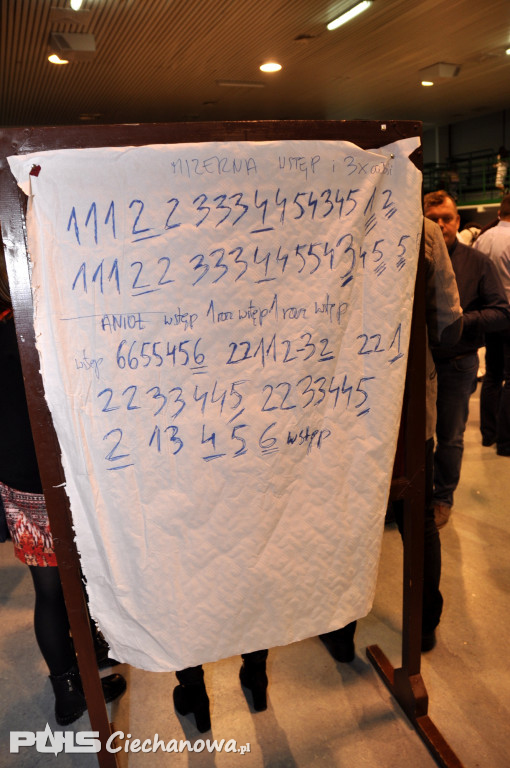 MIZERNA WSTĘP i 3x całości
1112233344543451 2
1112233344554345 5
ANIOŁ wstęp 1 raz wstęp 1 raz wstęp
wstęp 6655456 22112-32 221
2233445 2233445
2 13 4 5 6 wstęp
PULS Ciechanowa.pl